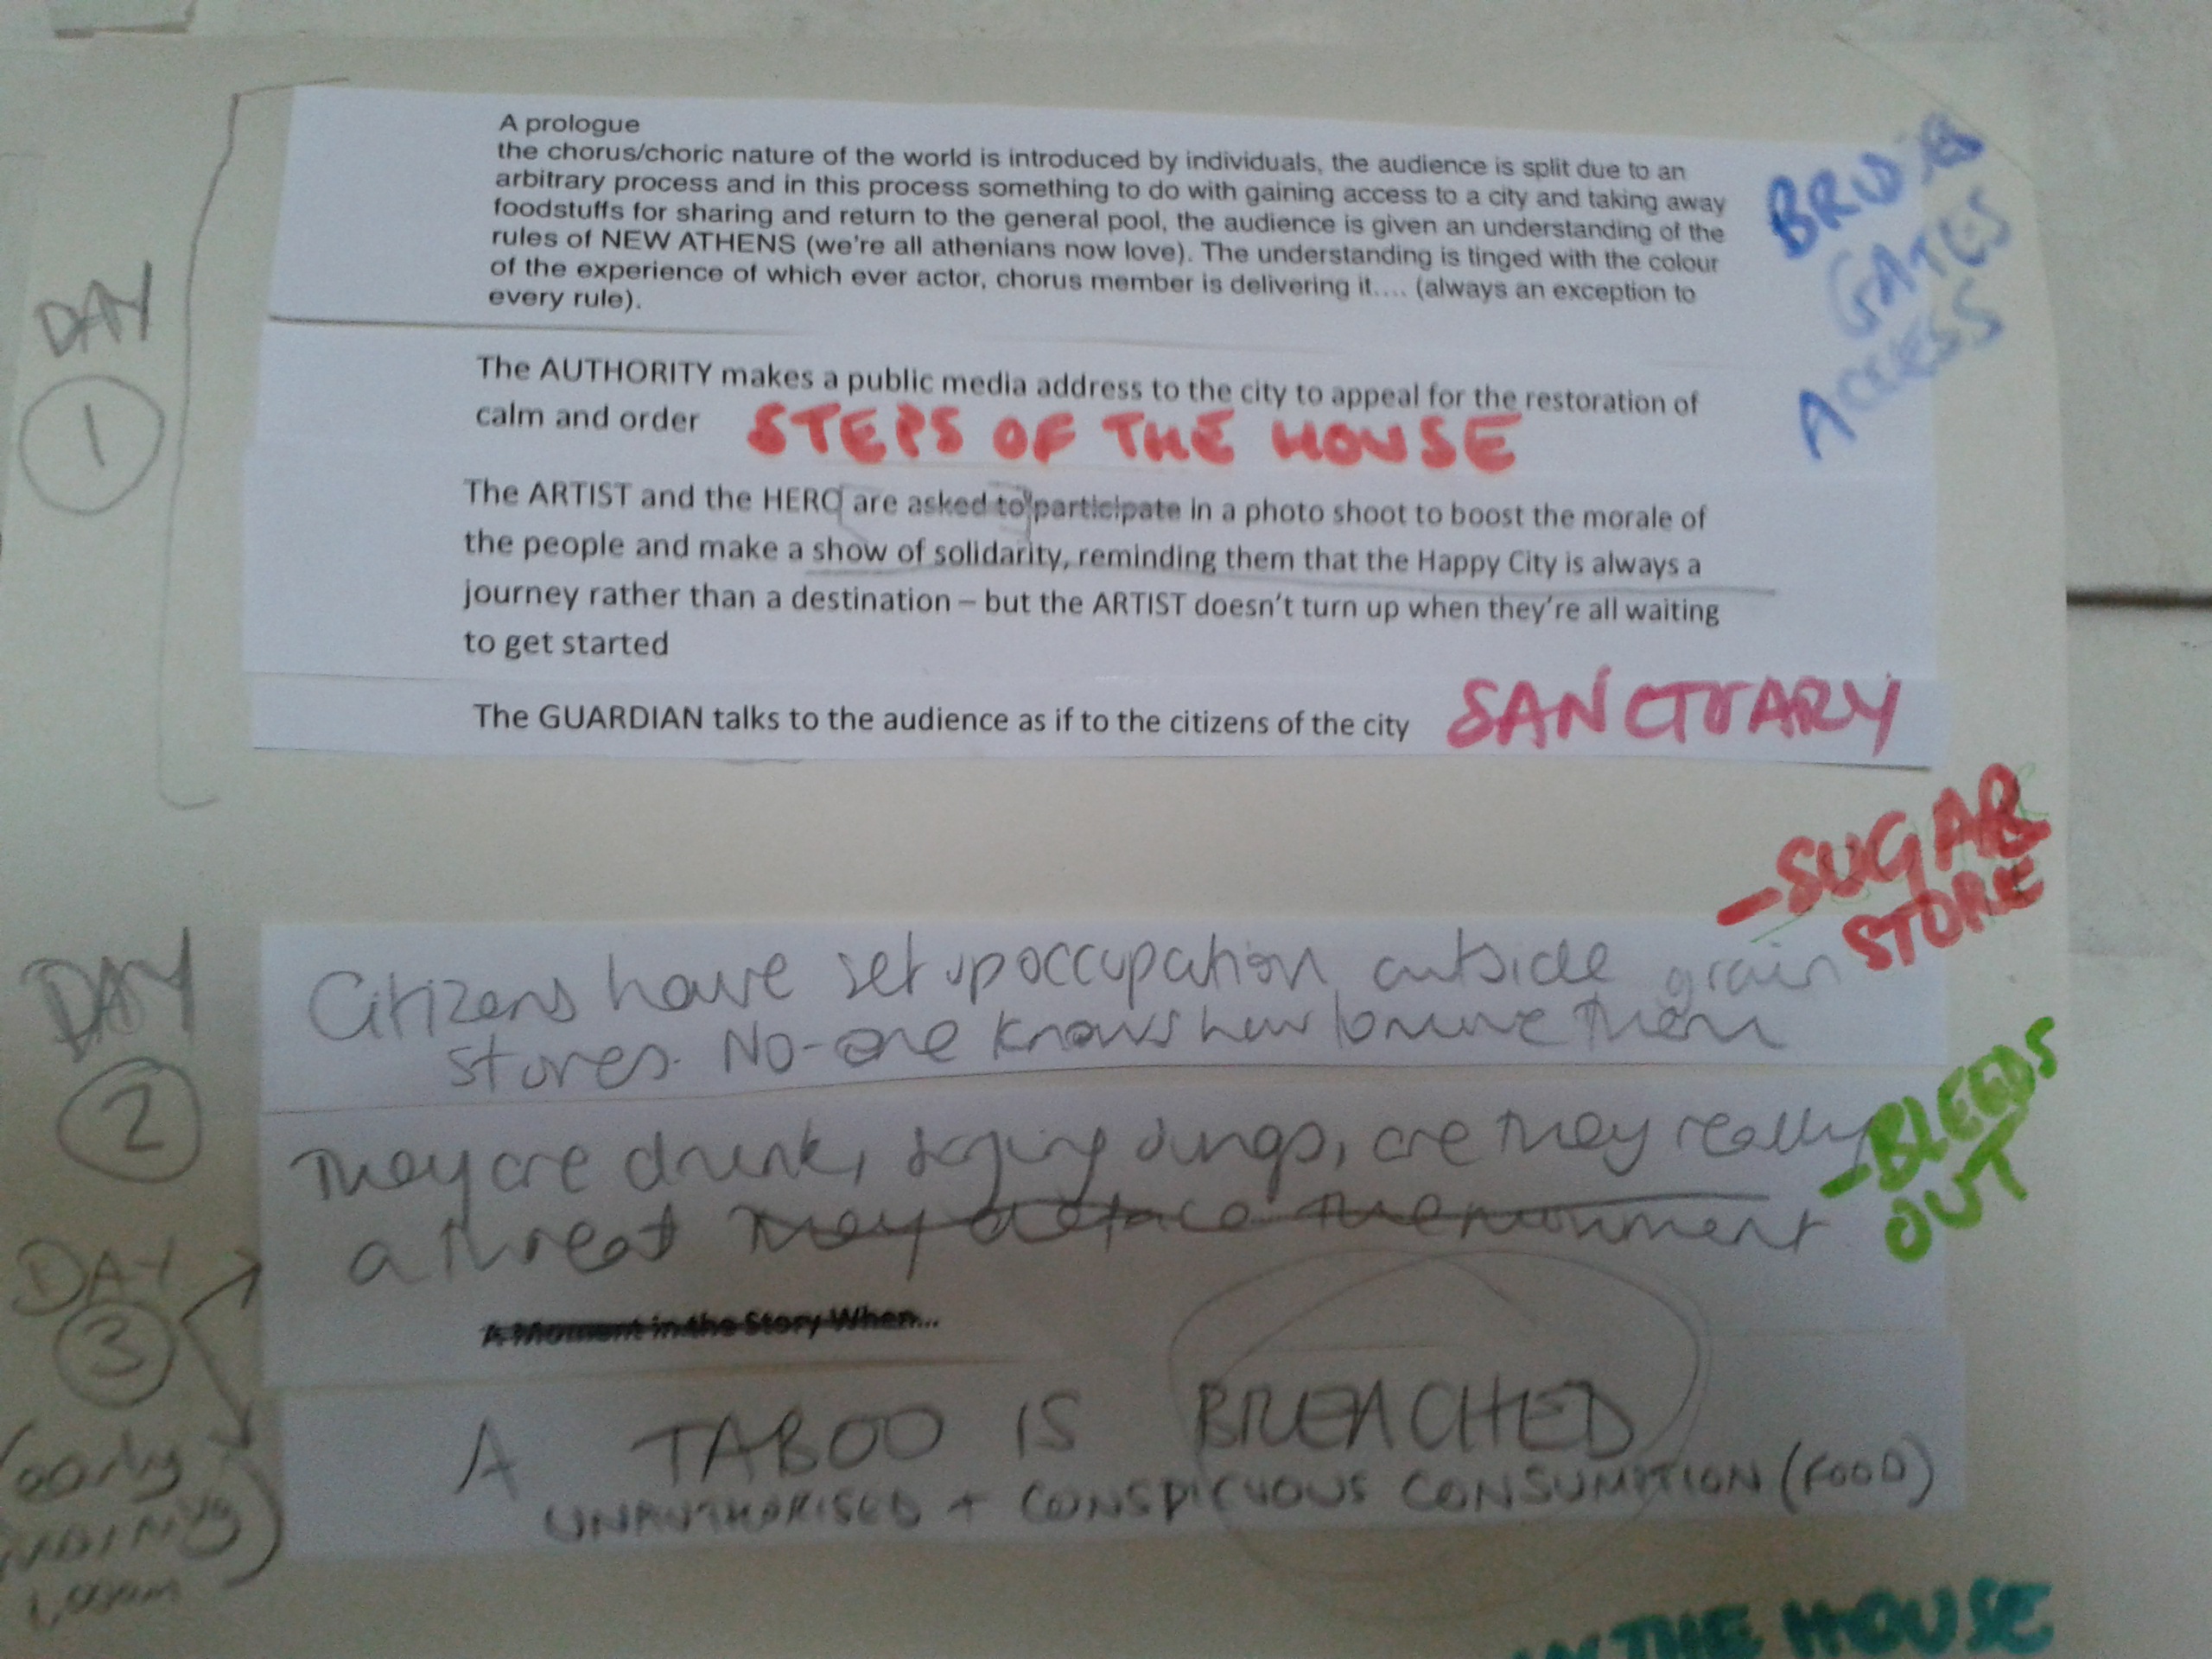 A prologue
the chorus/choric nature of the world is introduced by individuals, the audience is split due to an
arbitrary process and in this process something to do with gaining access to a city and taking away
foodstuffs for sharing and return to the general pool, the audience is given an understanding of the
rules of NEW ATHENS (we're all athenians now love). The understanding is tinged with the colour
of the experience of which ever actor, chorus member is delivering it.... (always an exception to
every rule).
GATES
ACCESS
DAY
1
The AUTHORITY makes a public media address to the city to appeal for the restoration of
calm and order STEPS OF THE HOUSE
The ARTIST and the HERO are asked to participate in a photo shoot to boost the morale of
the people and make a show of solidarity, reminding them that the Happy City is always a
journey rather than a destination – but the ARTIST doesn't turn up when they're all waiting
to get started
The GUARDIAN talks to the audience as if to the citizens of the city SANCTUARY
-SUGAR
STORE
DAY
2
Citizens have set up occupation outside grain
stores. No-one knows how to move them
They are drunk, singing songs, are they really
a threat They deface the monument
-BLEEDS
OUT
DAY
3
(early
A Moment in the Story When...
A TABOO IS BREACHED
UNAUTHORISED + CONSPICUOUS CONSUMPTION (FOOD)
THE HOUSE